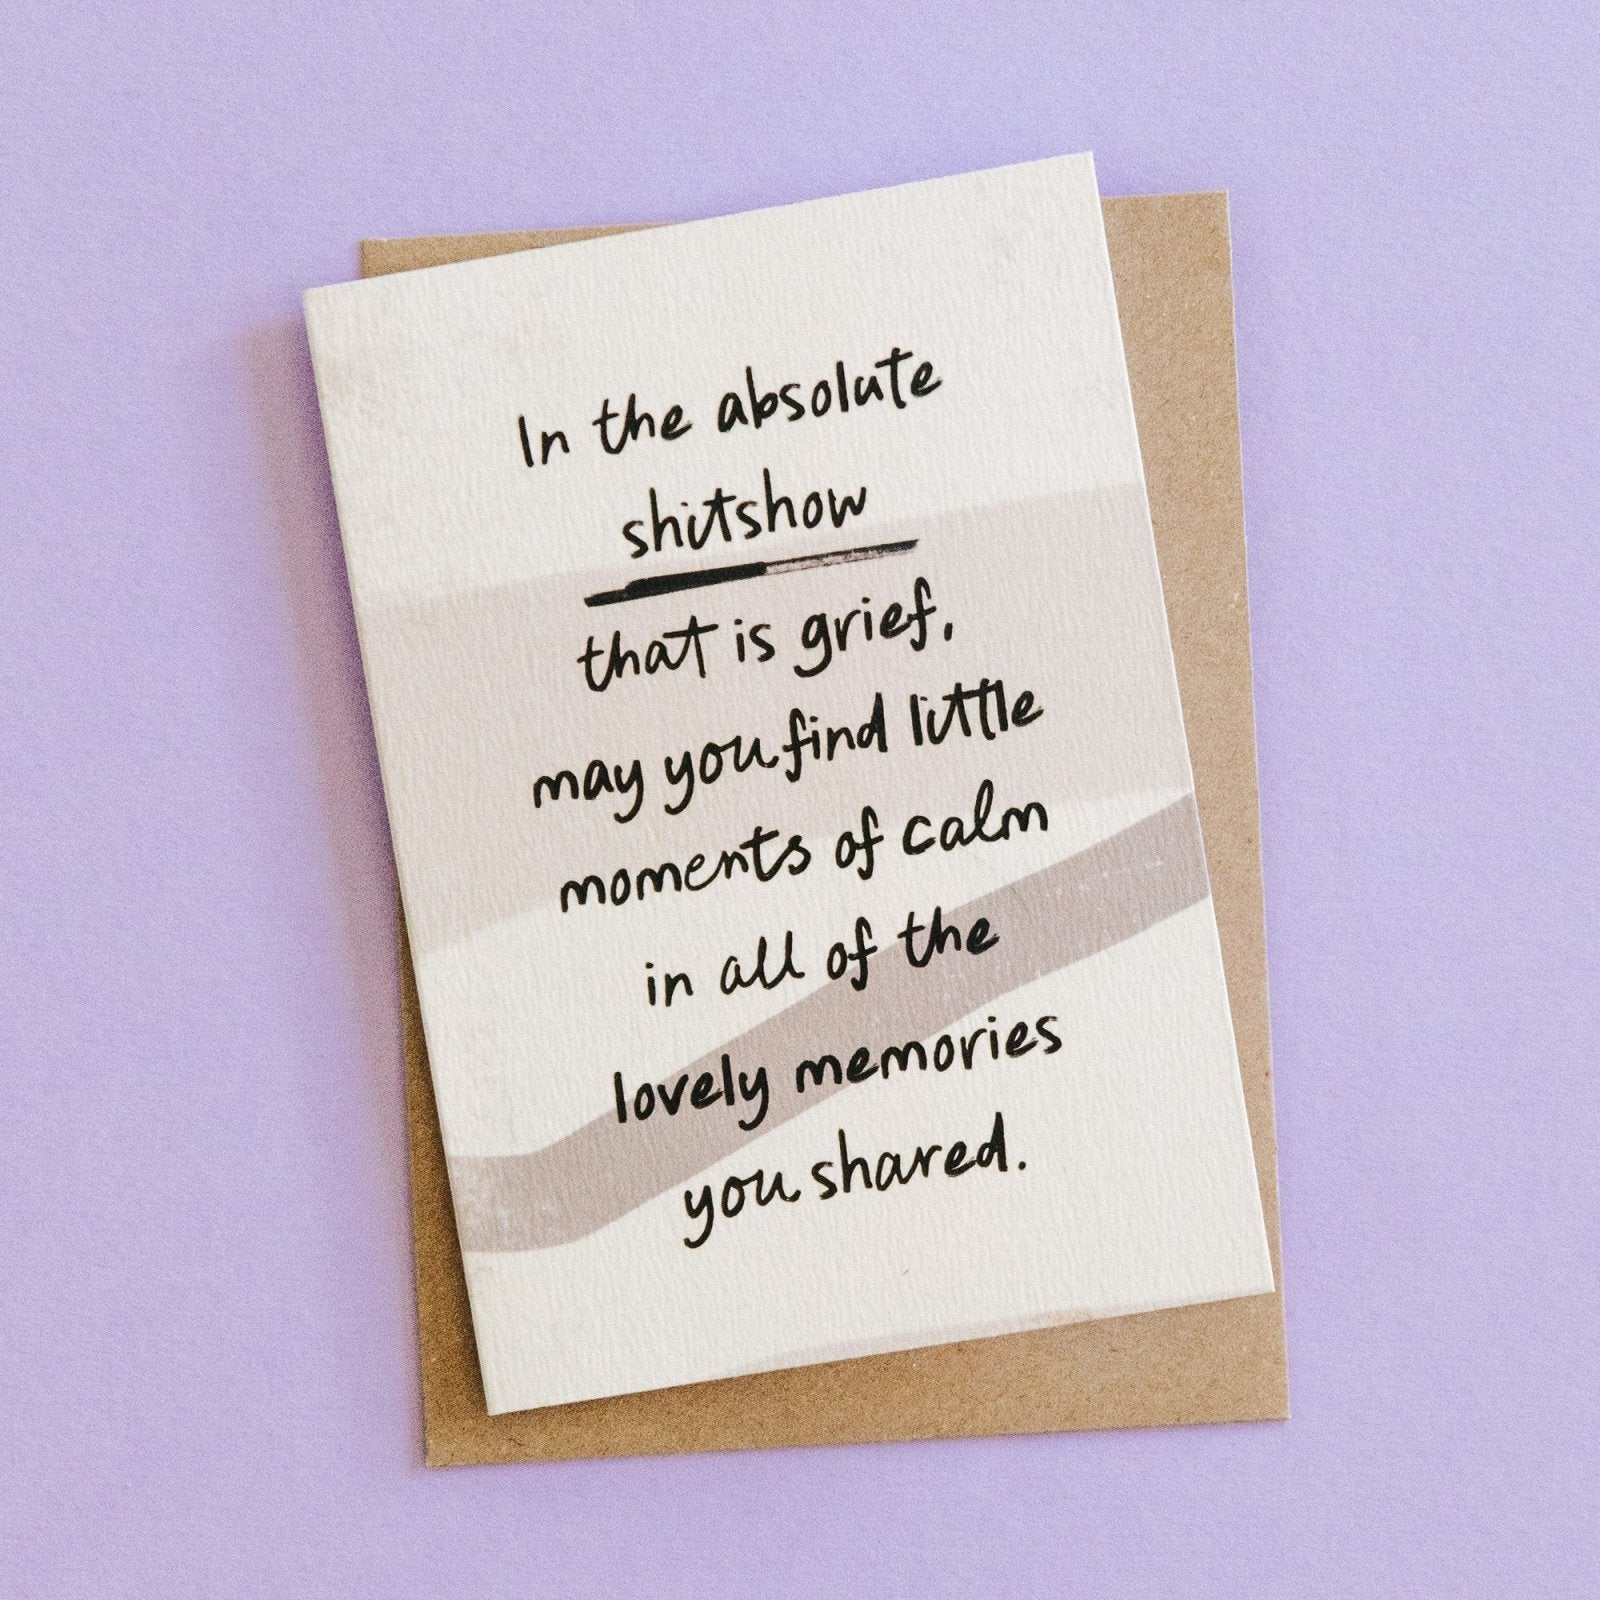 In the absolute
shitshow
that is grief,
may you find little
moments of calm
in all of the
lovely memories
you shared.